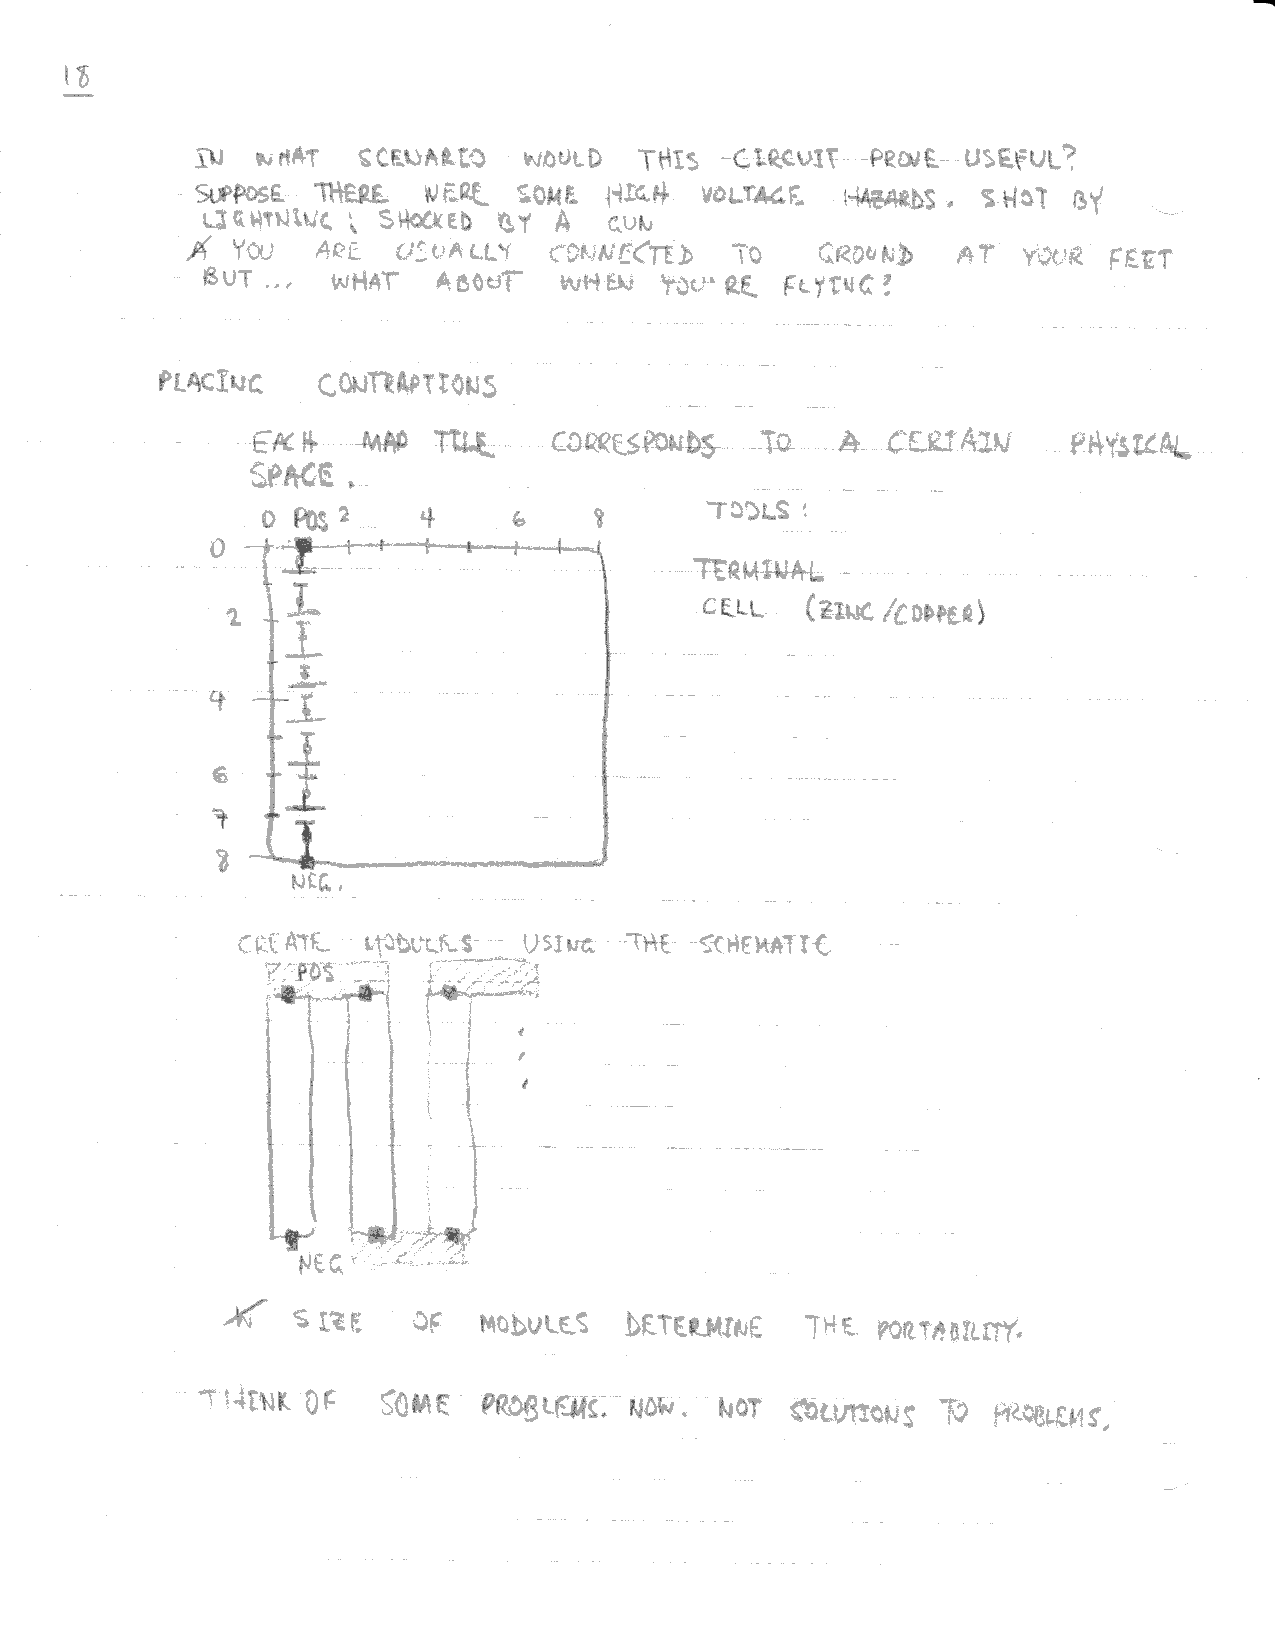 18
IN WHAT SCENARIO WOULD THIS CIRCUIT PROVE USEFUL?
SUPPOSE THERE WERE SOME HIGH VOLTAGE HAZARDS. SHOT BY
LIGHTNING; SHOCKED BY A GUN
YOU ARE USUALLY CONNECTED TO GROUND AT YOUR FEET
BUT... WHAT ABOUT WHEN YOU'RE FLYING?
PLACING CONTRAPTIONS
EACH MAP TILE CORRESPONDS TO A CERTAIN PHYSICAL
SPACE.
0 POS 2 4 6 8
0
2
4
6
7
8
NEG.
TOOLS:
TERMINAL
CELL (ZINC/COPPER)
CREATE MODULES USING THE SCHEMATIC
POS
NEG
SIZE OF MODULES DETERMINE THE PORTABILITY.
THINK OF SOME PROBLEMS. NOW. NOT SOLUTIONS TO PROBLEMS.